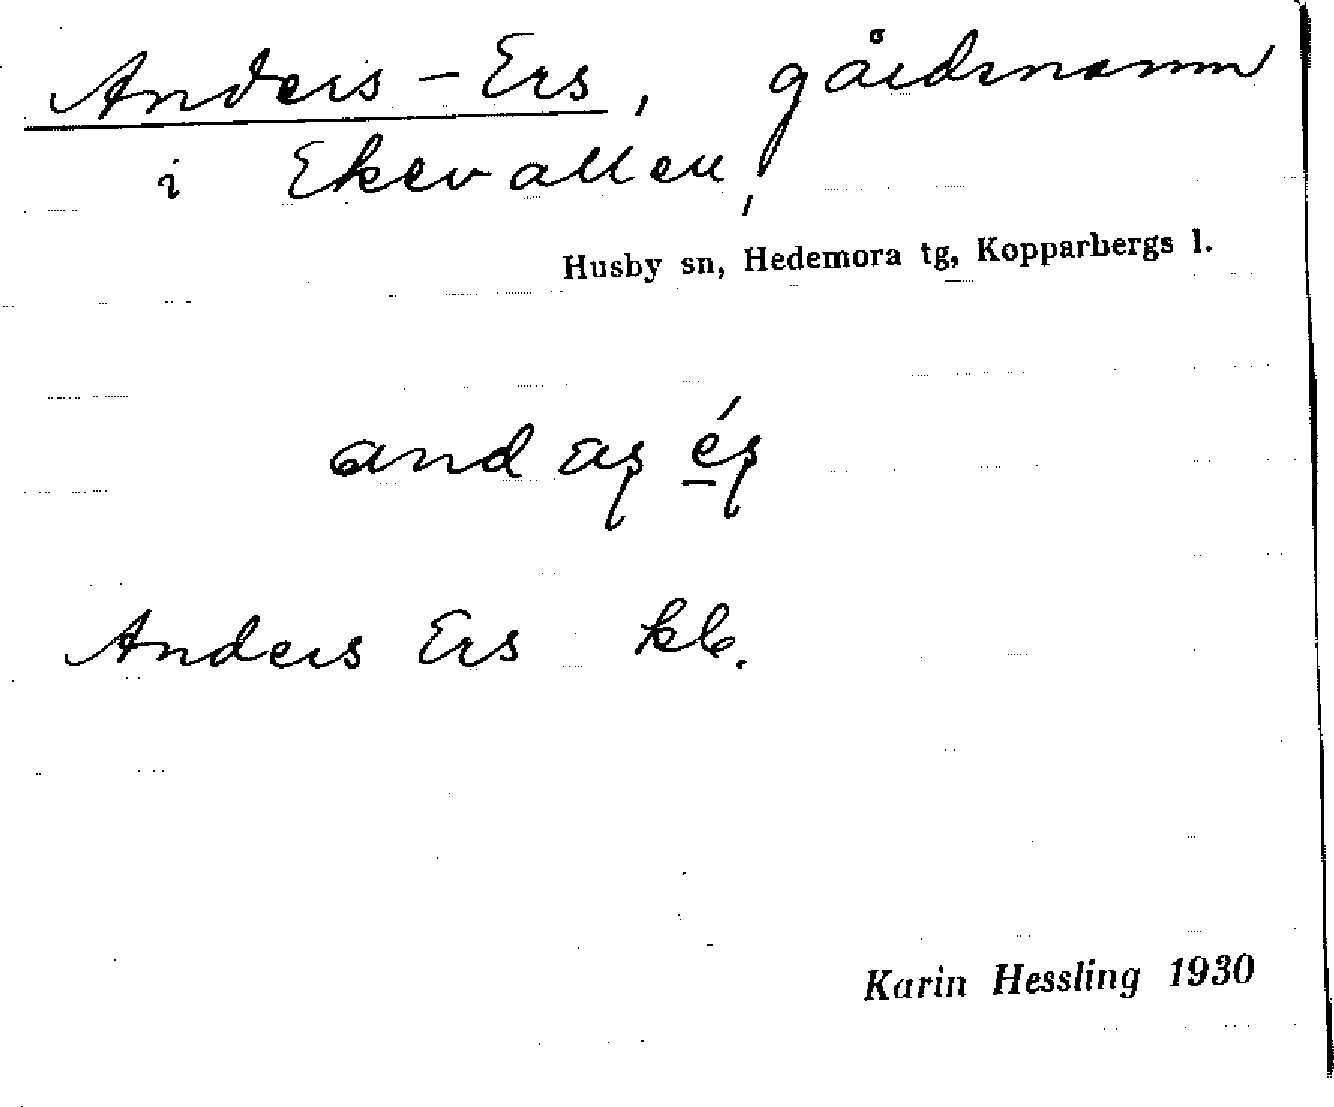 Anders-Ers, gårdsnamn
i Ekevallen,
Husby sn, Hedemora tg, Kopparbergs l.
Anders Ers kb.
Karin Hessling 1930